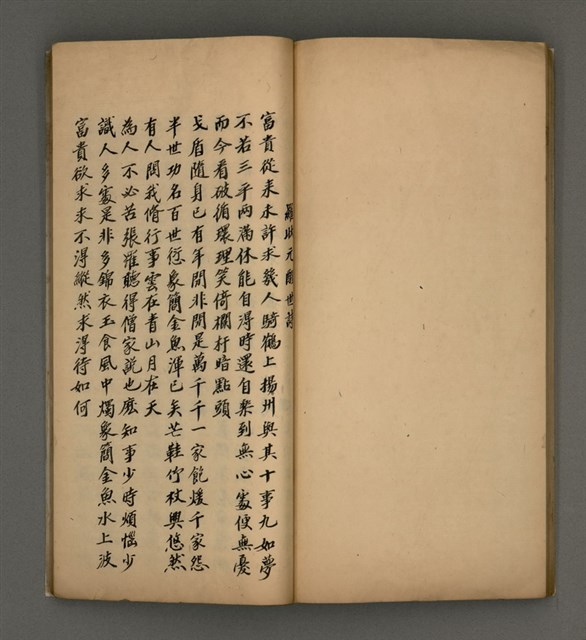 羅狀元醒世詩
富貴從来未許求幾人騎鶴上揚州與其十事九如夢
不若三平两滿休能自得時還自樂到無心處便無憂
而今看破循環理笑倚欄杆暗點頭
戈盾隨身已有年閒非閒是萬千千一家飽煖千家怨
半世功名百世愆象簡金魚渾已矣芒鞋竹杖興悠然
有人問我脩行事雲在青山月在天
為人不必苦張羅聽得僧家説也麽知事少時煩惱少
識人多處是非多錦衣玉食風中燭象簡金魚水上波
富貴欲求求不得縱然求得待如何